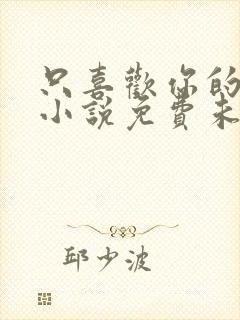 只喜歡你的
小說免費未
邱少波